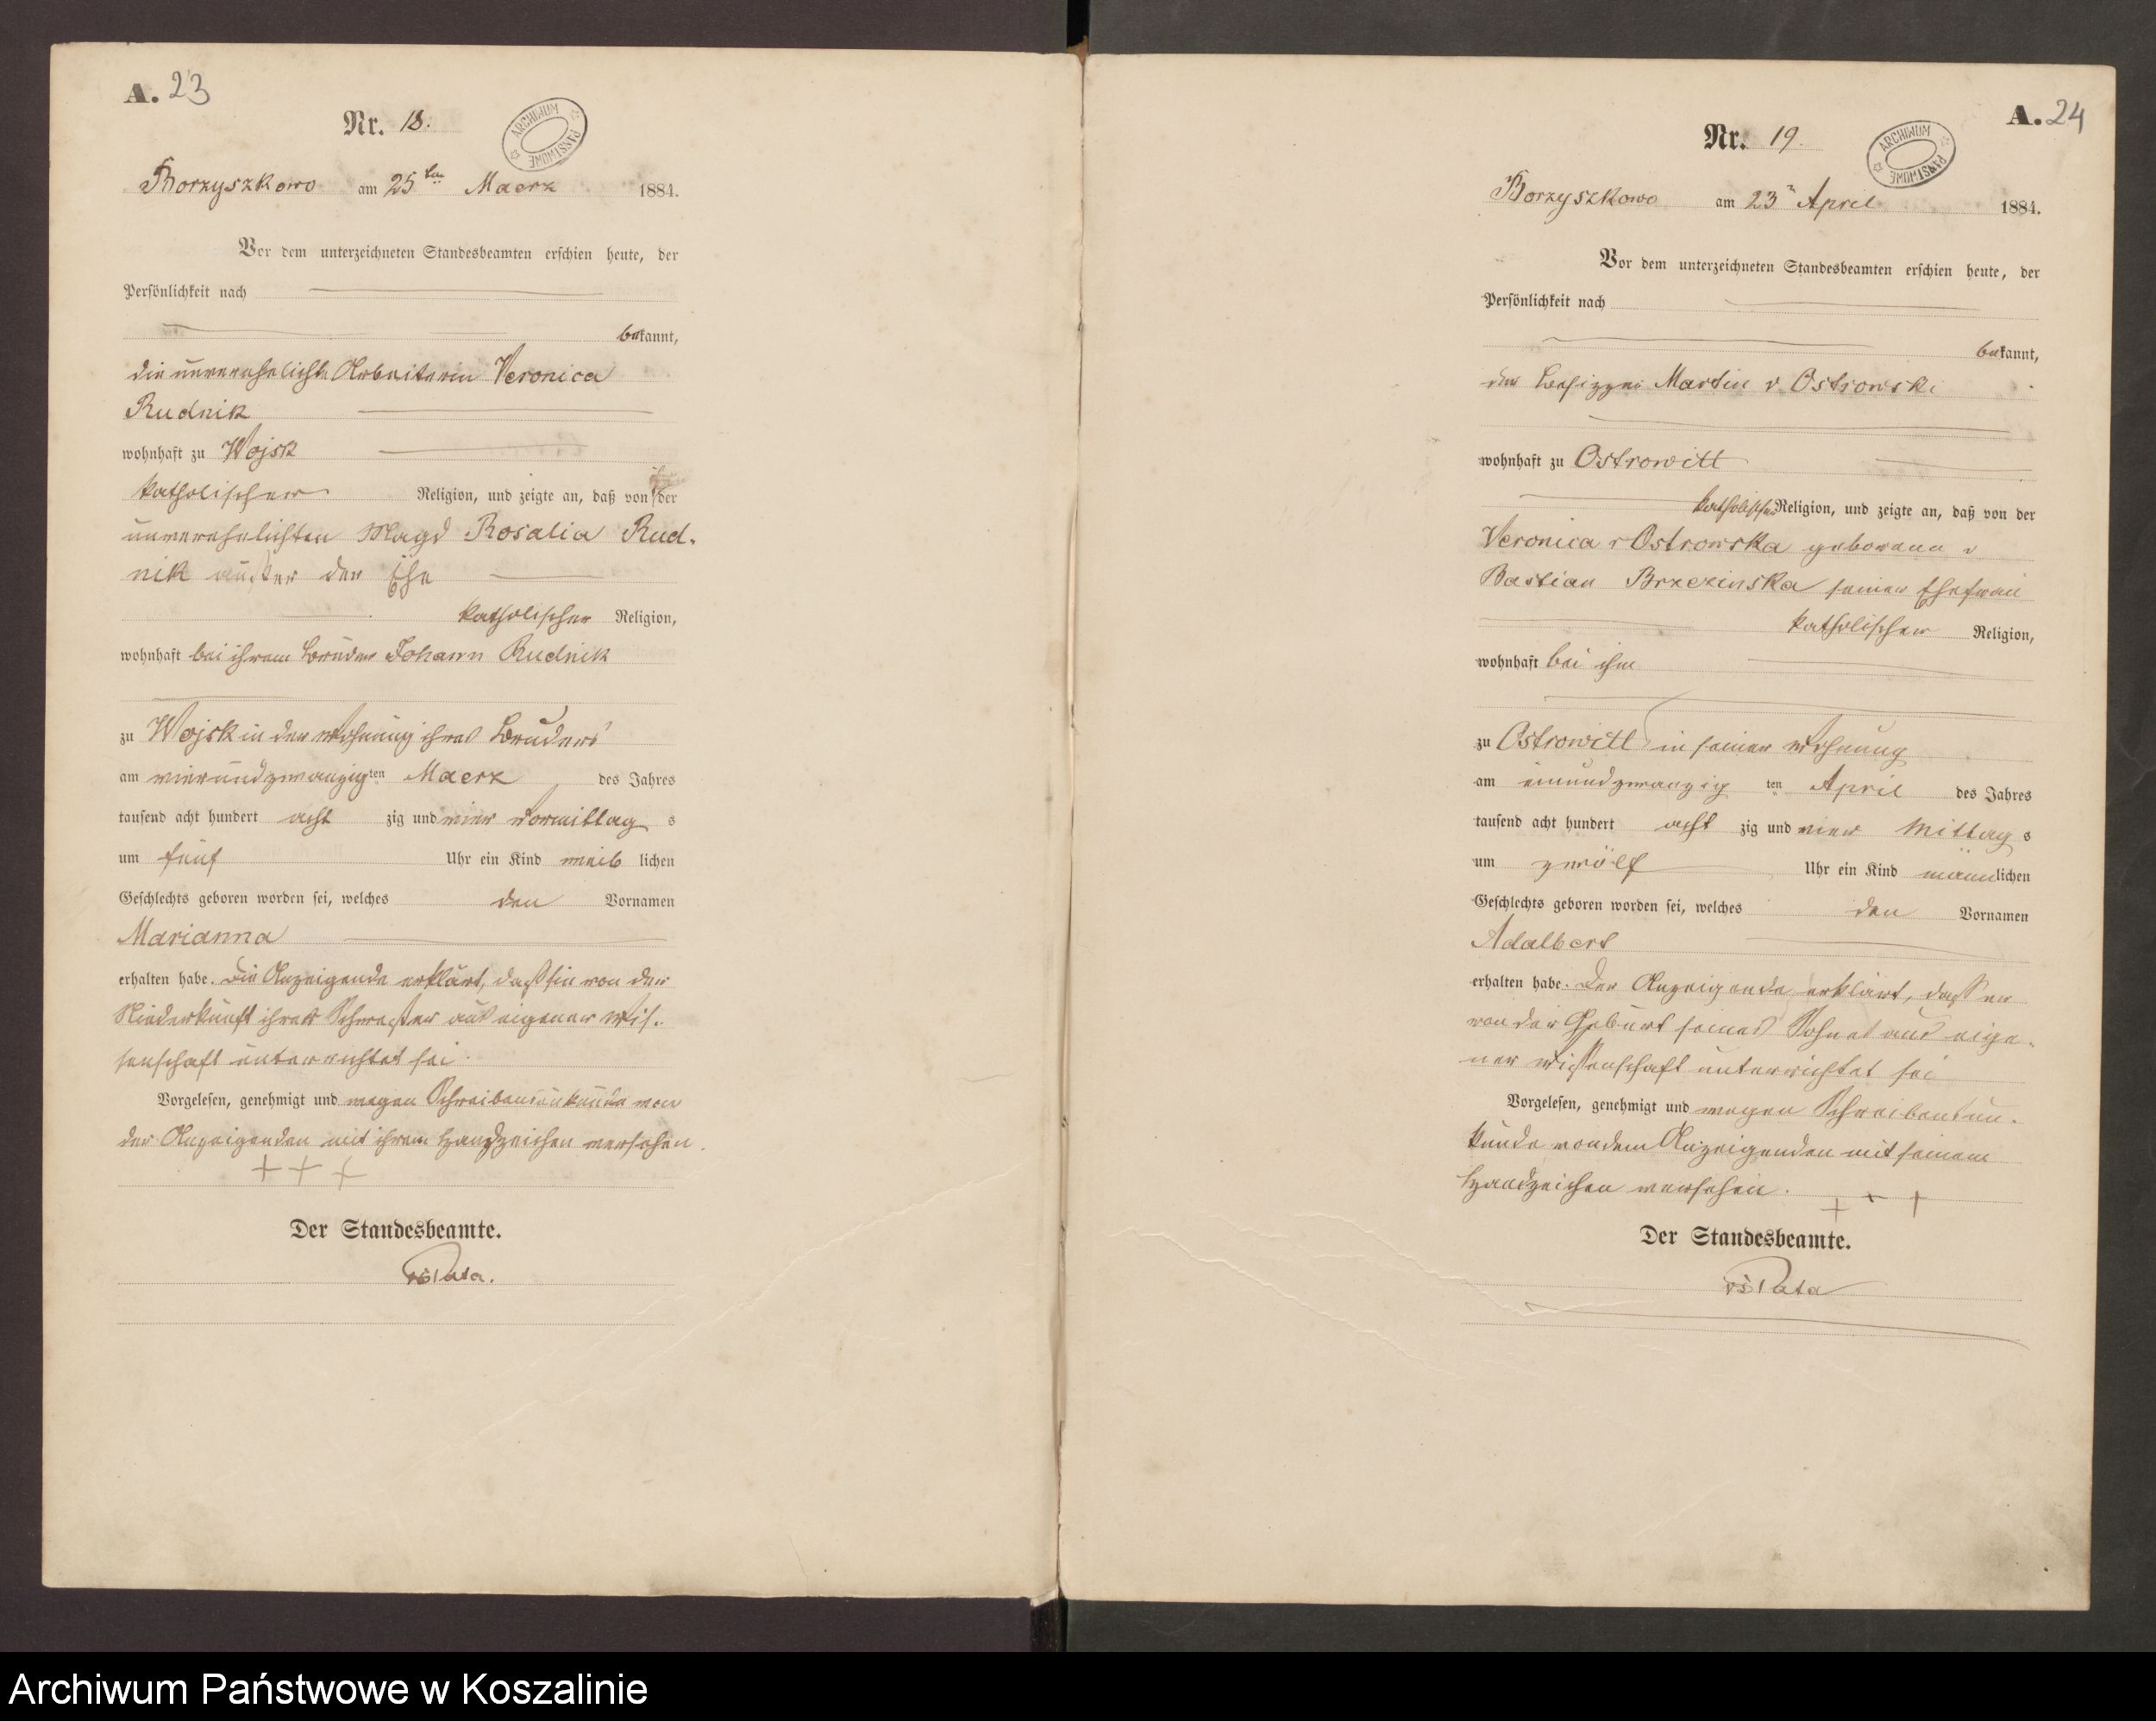 A. 23
Nr. 18.
ARCHIWUM PAŃSTWOWE
Borzyszkowo am 25ten Maerz 1884.
Vor dem unterzeichneten Standesbeamten erschien heute, der
Persönlichkeit nach
bekannt,
die unverehelichte Arbeiterin Veronica
Rudnik
wohnhaft zu Wojsk
katholischer Religion, und zeigte an, daß von der
unverehelichten Magd Rosalia Rud-
nik außer der Ehe
katholischer Religion,
wohnhaft bei ihrem Bruder Johann Rudnik
zu Wojsk in der Wohnung ihres Bruders
am vierundzwanzigten Maerz des Jahres
tausend acht hundert acht zig und vier Vormittag s
um fünf Uhr ein Kind weib lichen
Geschlechts geboren worden sei, welches den Vornamen
Marianna
erhalten habe. Die Anzeigende erklärt, daß sie von der
Niederkunft ihrer Schwester aus eigener Wis-
senschaft unterrichtet sei.
Vorgelesen, genehmigt und wegen Schreibensunkunde von
der Anzeigenden mit ihrem Handzeichen versehen.
+ + +
Der Standesbeamte.
A. 24
Nr. 19.
ARCHIWUM PAŃSTWOWE
Borzyszkowo am 23n April 1884.
Vor dem unterzeichneten Standesbeamten erschien heute, der
Persönlichkeit nach
bekannt,
der Besitzer Martin v Ostrowski
wohnhaft zu Ostrowitt
katholischer Religion, und zeigte an, daß von der
Veronica v Ostrowska geborene v
Bastian Brzezinska seiner Ehefrau
katholischer Religion,
wohnhaft bei ihm
zu Ostrowitt in seiner Wohnung
am einundzwanzig ten April des Jahres
tausend acht hundert acht zig und vier Mittag s
um zwölf Uhr ein Kind männlichen
Geschlechts geboren worden sei, welches den Vornamen
Adalbert
erhalten habe. Der Anzeigende erklärt, daß er
von der Geburt seines Sohnes aus eige-
ner Wissenschaft unterrichtet sei
Vorgelesen, genehmigt und wegen Schreibensun-
kunde von dem Anzeigenden mit seinem
Handzeichen versehen.
+ + +
Der Standesbeamte.
Archiwum Państwowe w Koszalinie